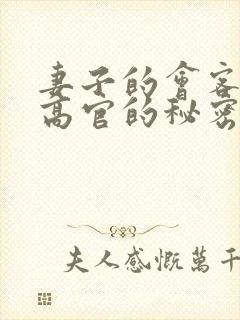 妻子的會客
高官的秘密
夫人感慨萬千